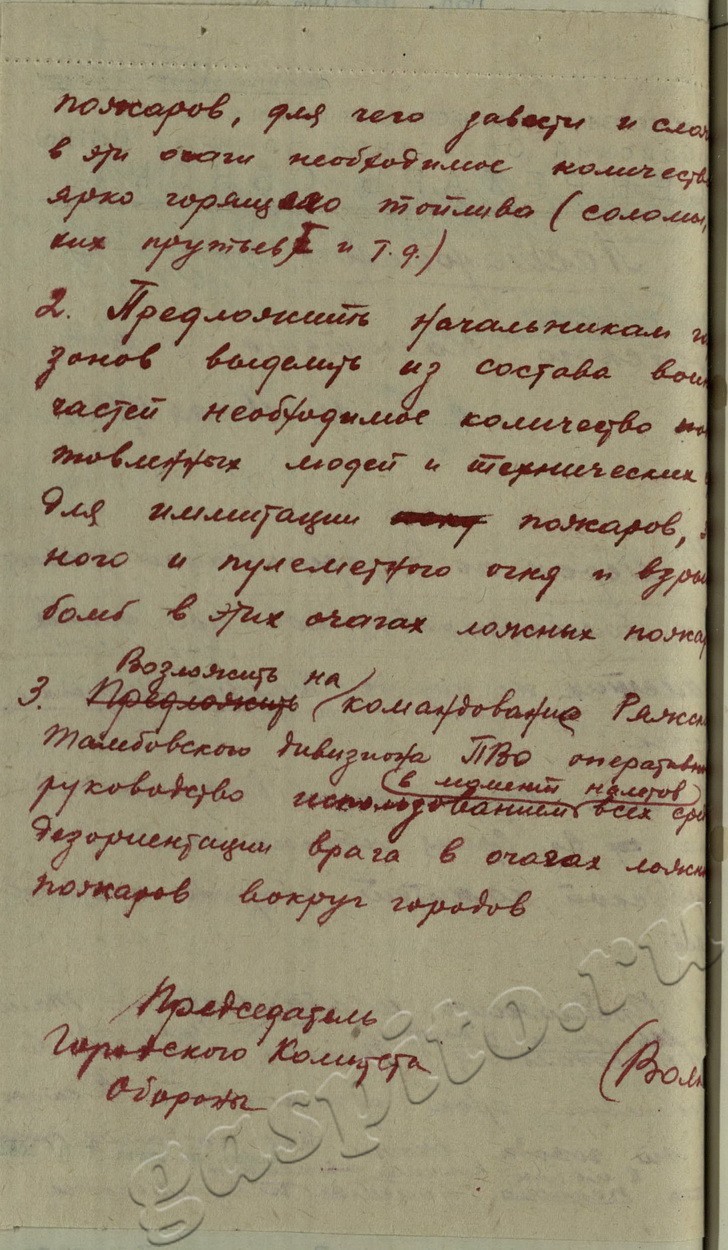 пожаров, для чего завести и слож
в эти очаги необходимое количеств
ярко горящего топлива (соломы,
ких прутьев и т.д.)
2. Предложить начальникам га
зонов выделить из состава воин
частей необходимое количество
товленных людей и технических
для имитации пожаров,
ного и пулеметного огня и взры
бомб в этих очагах ложных пожар
Возложить на
3. Предложить командование Ряжск
Тамбовского дивизиона ПВО оперативн
в момент налетов
руководство использованием всех сре
дезориентации врага в очагах ложн
пожаров вокруг городов
Председатель
Городского Комитета
Обороны
(Волк
gaspito.ru